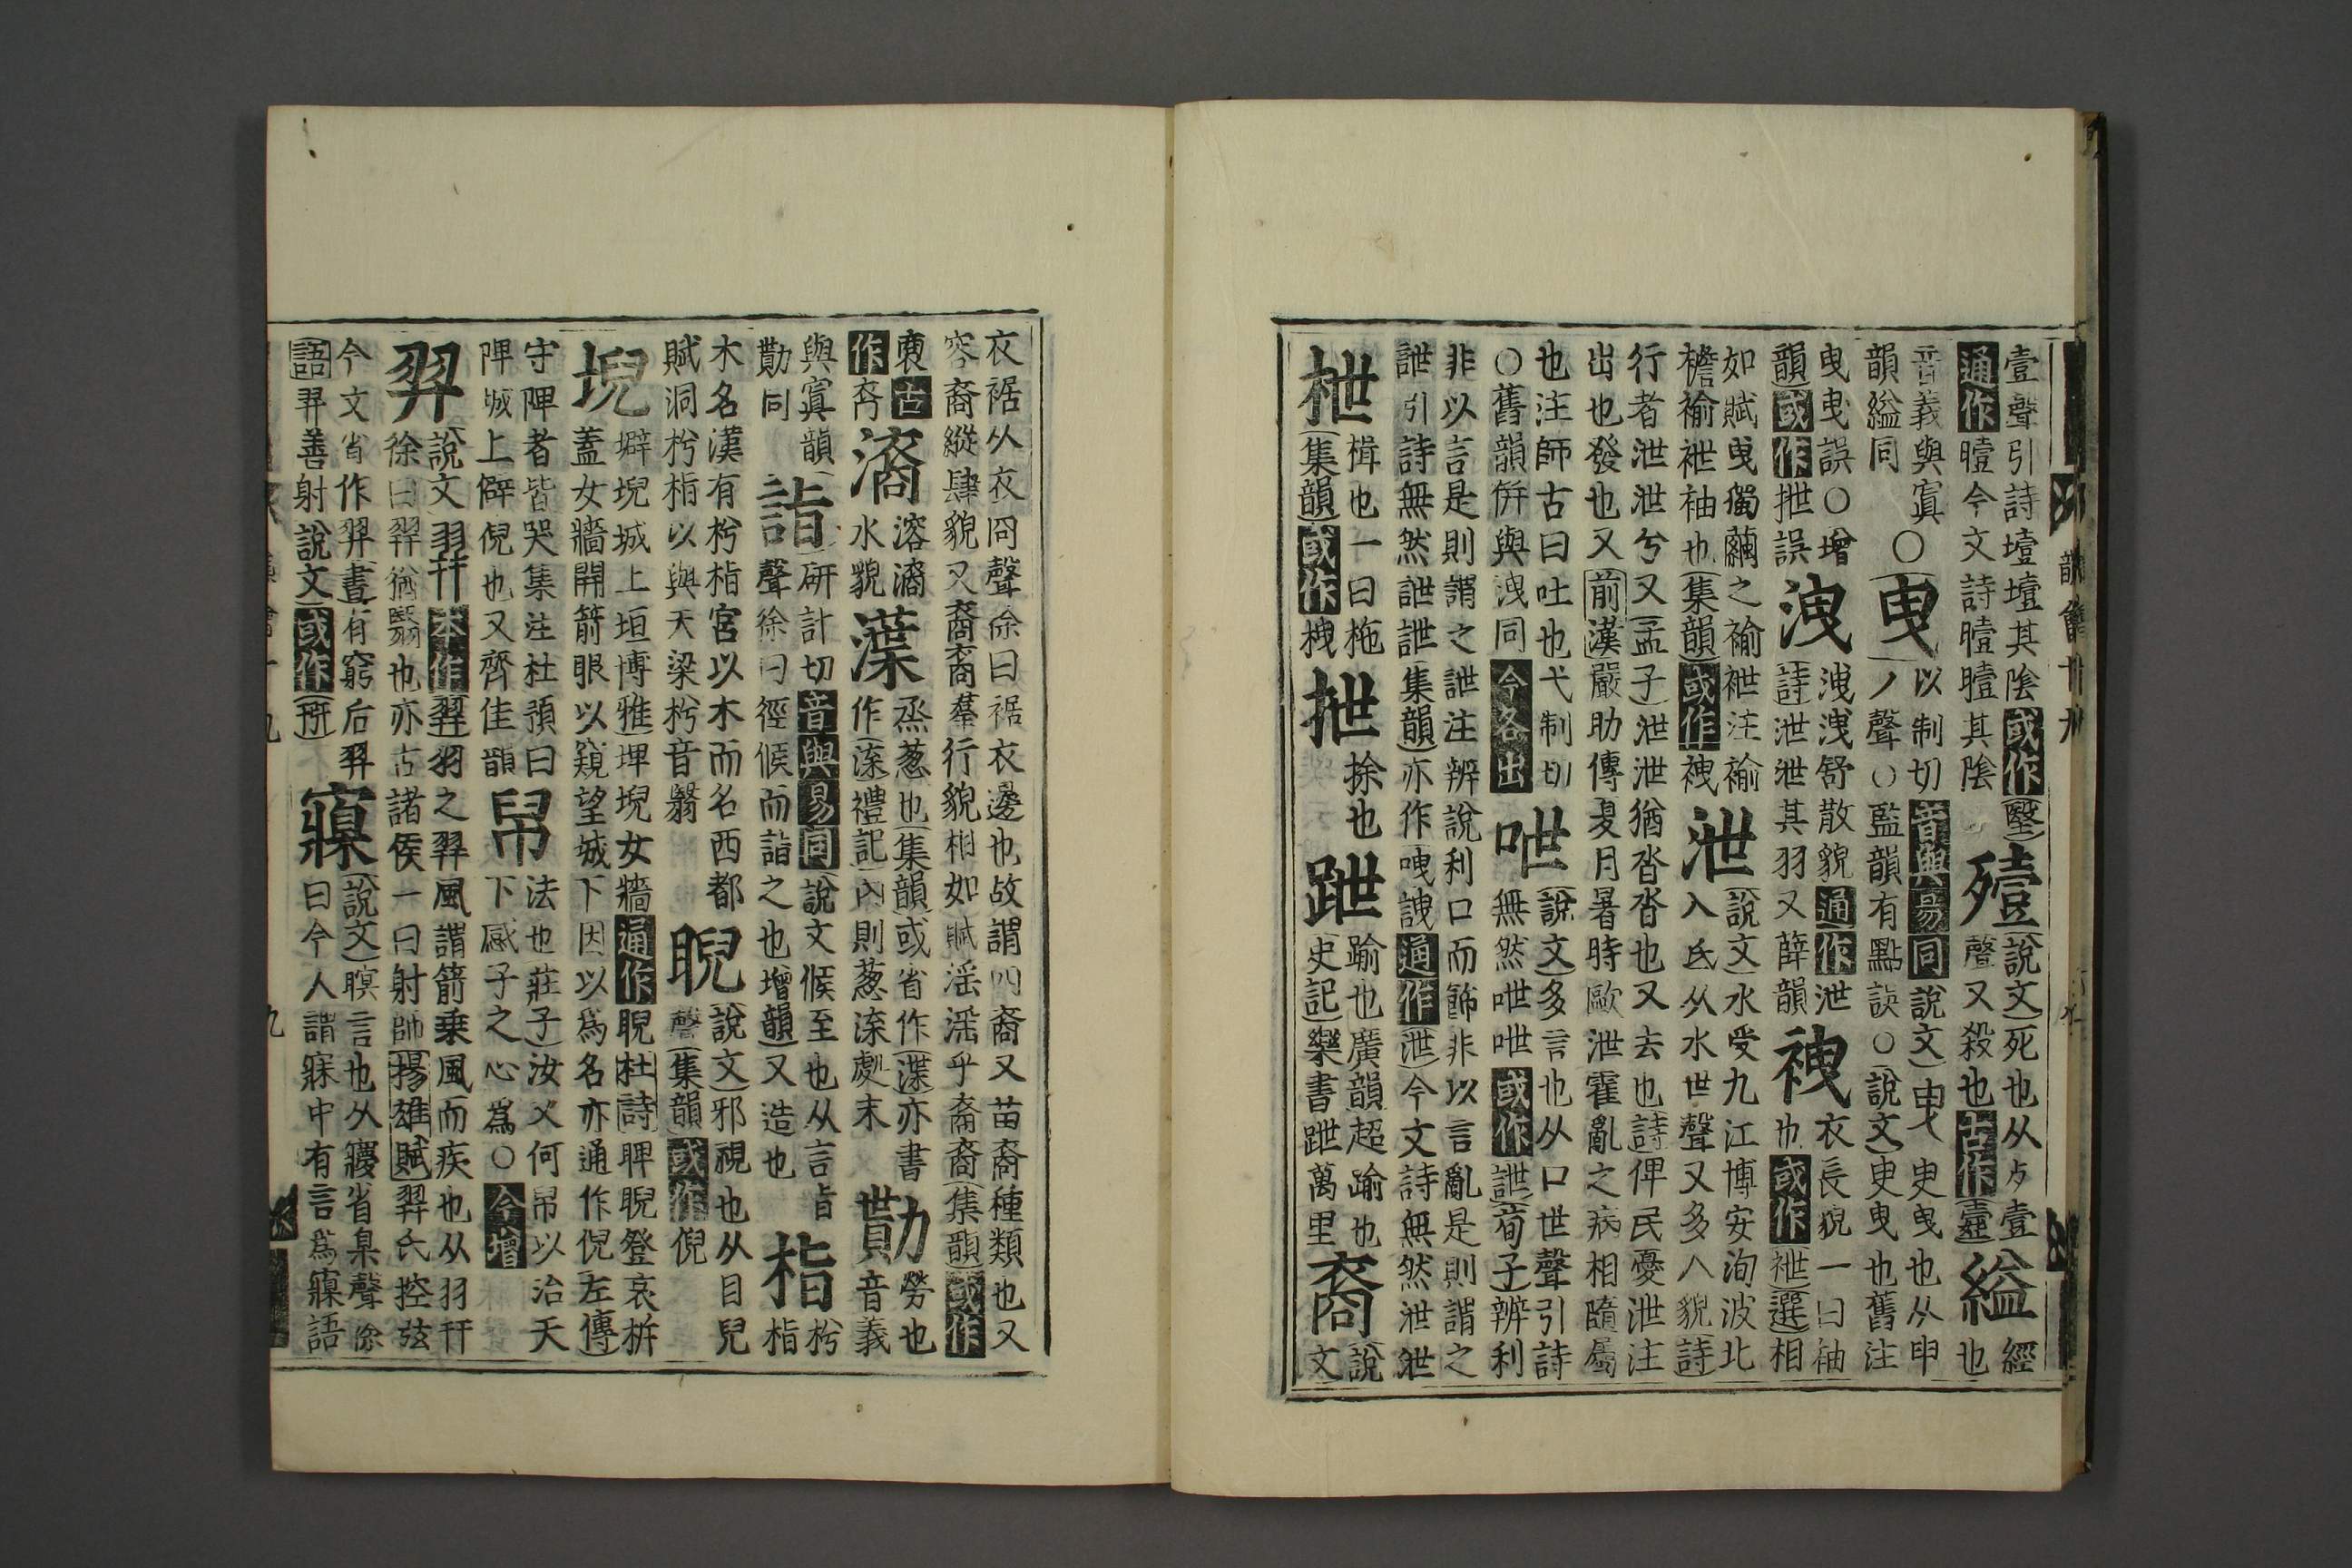 壹聲引詩𡑞𡑞其陰或作通作曀今文詩曀曀其陰殪說文死也从歹壹聲又殺也古作縊經也
音義與寘韻縊同〇曳以制切音與易同說文臾曳也从申丿聲〇監韻有點誤〇說文臾曳也舊注
曳曳誤〇增韻或作抴誤洩洩洩舒散貌通作泄詩泄泄其羽又薛韻衣長貌一曰袖也或作袣選相
如賦曳獨繭之褕袣注褕襜褕袣袖也集韻或作泄說文水受九江博安洵波北入氐从水世聲又多人貌詩
行者泄泄兮又孟子泄泄猶沓沓也又去也詩俾民憂泄注出也發也又前漢嚴助傳夏月暑時歐泄霍亂之病相隨屬
也注師古曰吐也弋制切〇舊韻併與洩同今各出呭說文多言也从口世聲引詩無然呭呭或作詍荀子辨利
非以言是則謂之詍注辨說利口而飾非以言亂是則謂之詍引詩無然詍詍集韻亦作通作泄今文詩無然泄泄
枻楫也一曰柂集韻或作栧抴捈也跇踰也廣韻超踰也史記樂書跇萬里裔說文
韻會十九
衣裾从衣冏聲徐曰裾衣邊也故謂四裔又苗裔種類也又容裔縱肆貌又裔裔羣行貌相如賦淫淫乎裔裔集韻或作
古作溶水貌烝葱也集韻或省作渫亦書作禮記內則葱渿處末勩勞也音義
與寘韻勩同詣研計切音與易同說文候至也从言旨聲徐曰徑候而詣之也增韻又造也栺枍栺
木名漢有枍栺宮以木而名西都賦洞枍栺以與天梁枍音翳睨說文邪視也从目兒聲集韻或作倪
堄堄城上垣博雅埤堄女牆通作睨杜詩睥睨登哀柝蓋女牆開箭眼以窺望城下因以為名亦通作倪左傳
守陴者皆哭集注杜預曰陴城上僻倪也又齊佳韻帠法也莊子汝又何帠以治天下感予之心為〇今增
羿說文羽幵本作羿羽之羿風謂箭乗風而疾也从羽幵徐曰羿猶翳也亦古諸侯一曰射師揚雄賦羿氏控弦
今文省作羿書有窮后羿語羿善射說文或作寱說文瞑言也从㝱省臬聲徐曰今人謂寐中有言為寱語